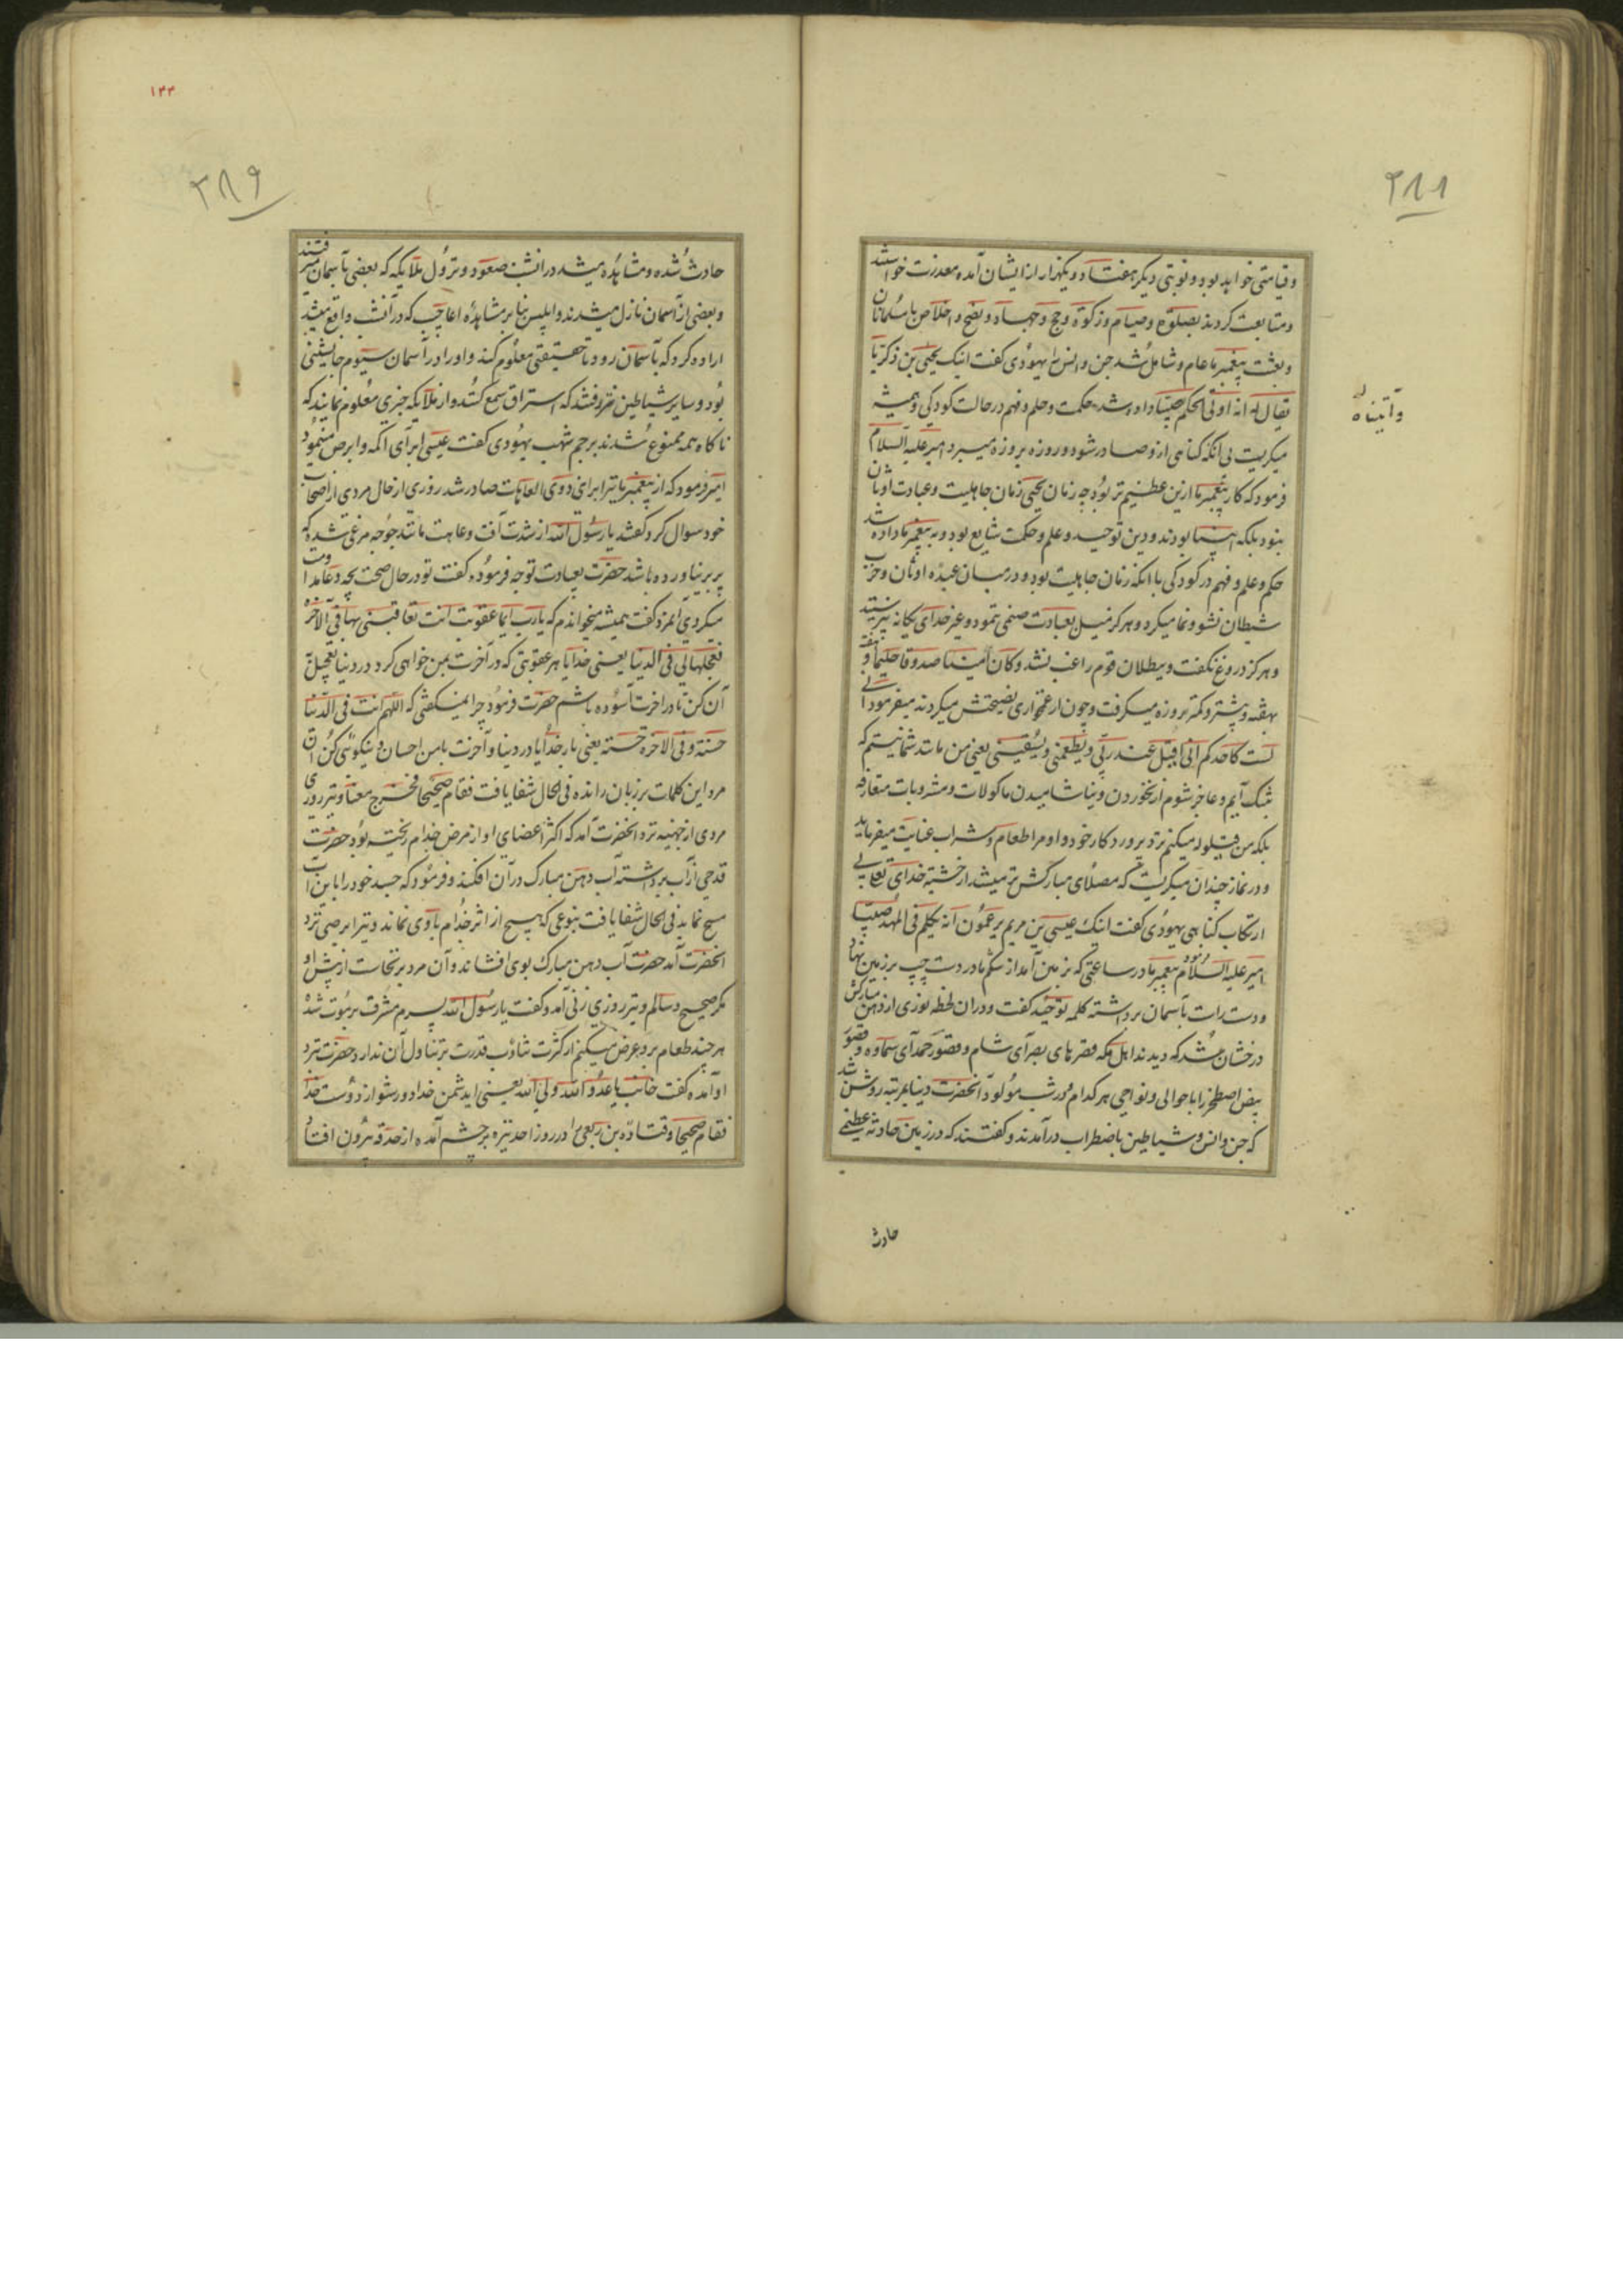 ۲۸۸
وقیامتی خواهد بود و نوبتی دیگر هفتاد و یکهزار از ایشان آمده معذرت خواستند
ومتابعت کردند بصلوة و صیام و زکوة و حج و جهاد و نصح و اخلاص با مسلمانان
وبعثت پیغمبر ما عام و شامل شد جن وانس را یهودی گفت اینک یحیی بن زکریا
یقال له انه اوتی الحکم صبیّا داده شد حکمت و حلم و فهم در حالت کودکی و همیشه
وآتیناه
میگریست بی آنکه گناهی از و صادر شود و روزه بروزه میبرد امیر علیه السلام
فرمود که کار پیغمبر ما ازین عظیم تر بود چه زمان یحیی زمان جاهلیت و عبادت اوثان
نبود بلکه انبیا بودند و دین توحید و علم و حکمت شایع بود و به پیغمبر ما داده شد
حکم و علم و فهم در کودکی با آنکه زمان جاهلیت بود و درمیان عبده اوثان و حزب
شیطان نشو و نما میکرد و هرگز میل بعبادت صنمی ننمود و غیر خدای یگانه نپرستید
وهرگز دروغ نگفت و ببطلان قوم راغب نشد وکان امینا صدوقا حلیما و
بهفته و بیشتر و کمتر بروزه میگرفت و چون از غمخواری نصیحتش میکردند میفرمود انی
لست کاحدکم انی اقیل عند ربّی و یطعمنی و یسقینی یعنی من مانند شما نیستم که
بتنگ آیم و عاجز شوم از نخوردن و نیاشامیدن ماکولات و مشروبات متعارفه
بلکه من قیلوله میکنم نزد پروردکار خود و او مرا طعام و شراب عنایت میفرماید
و در نماز چندان میگریست که مصلای مبارکش تر میشد از خشیته خدای تعالی بی
ارتکاب گناهی یهودی گفت اینک عیسی بن مریم یزعمون انه یکلم فی المهد صبیّا
امیر علیه السلام فرمود پیغمبر ما در ساعتی که بزمین آمد از شکم مادر دست چپ بر زمین نهاد
ودست راست بآسمان برداشته کلمه توحید گفت و دران لحظه نوری از دهن مبارکش
درخشان شد که دیدند اهل مکه قصرهای بصرای شام و قصور حمرای سماوه و قصور
بیض اصطخر را با حوالی و نواحی هر کدام و در شب مولود آنحضرت دنیا بمرتبه روشن شد
که جن و انس و شیاطین باضطراب درآمدند و گفتند که در زمین حادثه عظیمی
حادث
۱۳۳
۲۸۹
حادث شده و مشاهده میشد در انشب صعود و نزول ملایکه که بعضی بآسمان میرفتند
وبعضی از آسمان نازل میشدند و ابلیس بنا بر مشاهدۀ اعاجیب که در آنشب واقع میشد
اراده کرد که بآسمان رود تا حقیقتی معلوم کند و او را در آسمان سیوم جا نشینی
بود و سایر شیاطین نیز رفتند که استراق سمع کنند و از ملایکه خبری معلوم نمایند که
ناگاه همه ممنوع شدند برجم شهب یهودی گفت عیسی ابرای اکمه و ابرص مینمود
امیر فرمود که از پیغمبر ما نیز ابرای ذوی العاهات صادر شد روزی از حال مردی از اصحاب
خود سوال کرد گفتند یا رسول الله از شدت آفت و عاهت مانند جوجه مرغی شده که
پر برنیاورده باشد حضرت بعیادت توجه فرموده گفت تو در حال صحت بچه دعا مداومت
میکردی آنمرد گفت همیشه میخواندم که یا رب ایما عقوبت انت تعاقبنی بها فی الآخرة
فعجلها لی فی الدنیا یعنی خدایا هر عقوبتی که در آخرت بمن خواهی کرد در دنیا تعجیل
آن کن تا در آخرت آسوده باشم حضرت فرمود چرا نمیگفتی که اللهم آتنا فی الدنیا
حسنة وفی الآخرة حسنة یعنی بار خدایا در دنیا و آخرت با من احسان و نیکوئی کن آن
مرد این کلمات بر زبان رانده فی الحال شفا یافت فقام صحیحا فخرج معنا و نیز روزی
مردی از جهنیه نزد آنحضرت آمد که اکثر اعضای او از مرض جذام ریخته بود حضرت
قدحی از آب برداشته آب دهن مبارک در آن افکند و فرمود که جسد خود را باین آب
مسح نماید فی الحال شفا یافت بنوعی که هیچ از اثر جذام با وی نماند و نیز ابرصی نزد
آنحضرت آمد حضرت آب دهن مبارک بوی افشاند و آن مرد برنخاست از پیش او
مگر صحیح و سالم و نیز روزی زنی آمد و گفت یا رسول الله پسرم مشرف بر موت شده
هرچند طعام برو عرض میکنم از کثرت تثاؤب قدرت بر تناول آن ندارد حضرت نزد
او آمده گفت جانب یا عدو الله ولی الله یعنی ای دشمن خدا دور شو از دوست خدا
فقام صحیحا و قتاده بن ربعی را در روز احد نیزه بر چشم آمده از حدقه بیرون افتاد